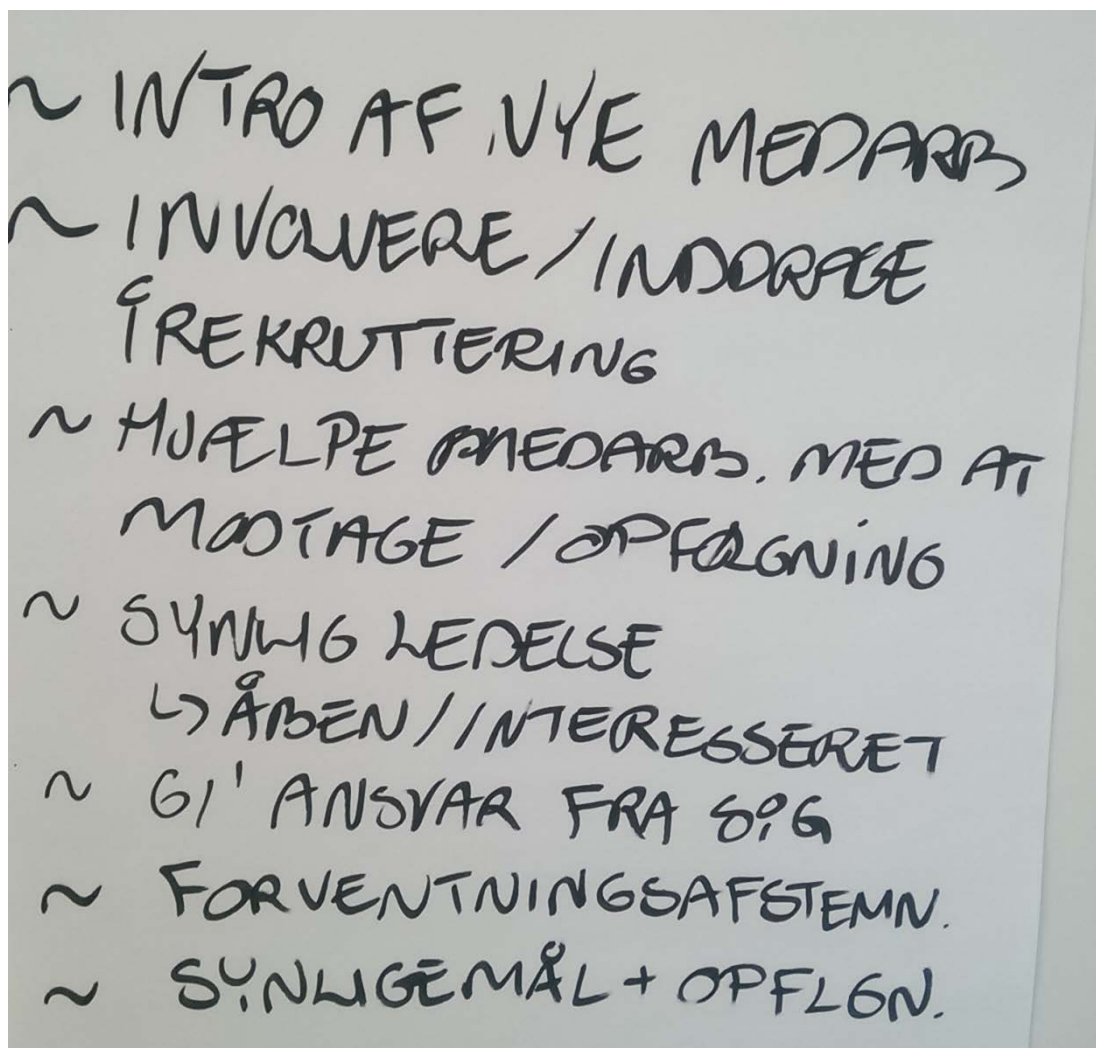 ~ INTRO AF NYE MEDARB
~ INVOLVERE / INDDRAGE
I REKRUTTERING
~ HJÆLPE MEDARB. MED AT
MODTAGE / OPFØLGNING
~ SYNLIG LEDELSE
↳ ÅBEN / INTERESSERET
~ GI' ANSVAR FRA SIG
~ FORVENTNINGSAFSTEMN.
~ SYNLIGE MÅL + OPFLGN.